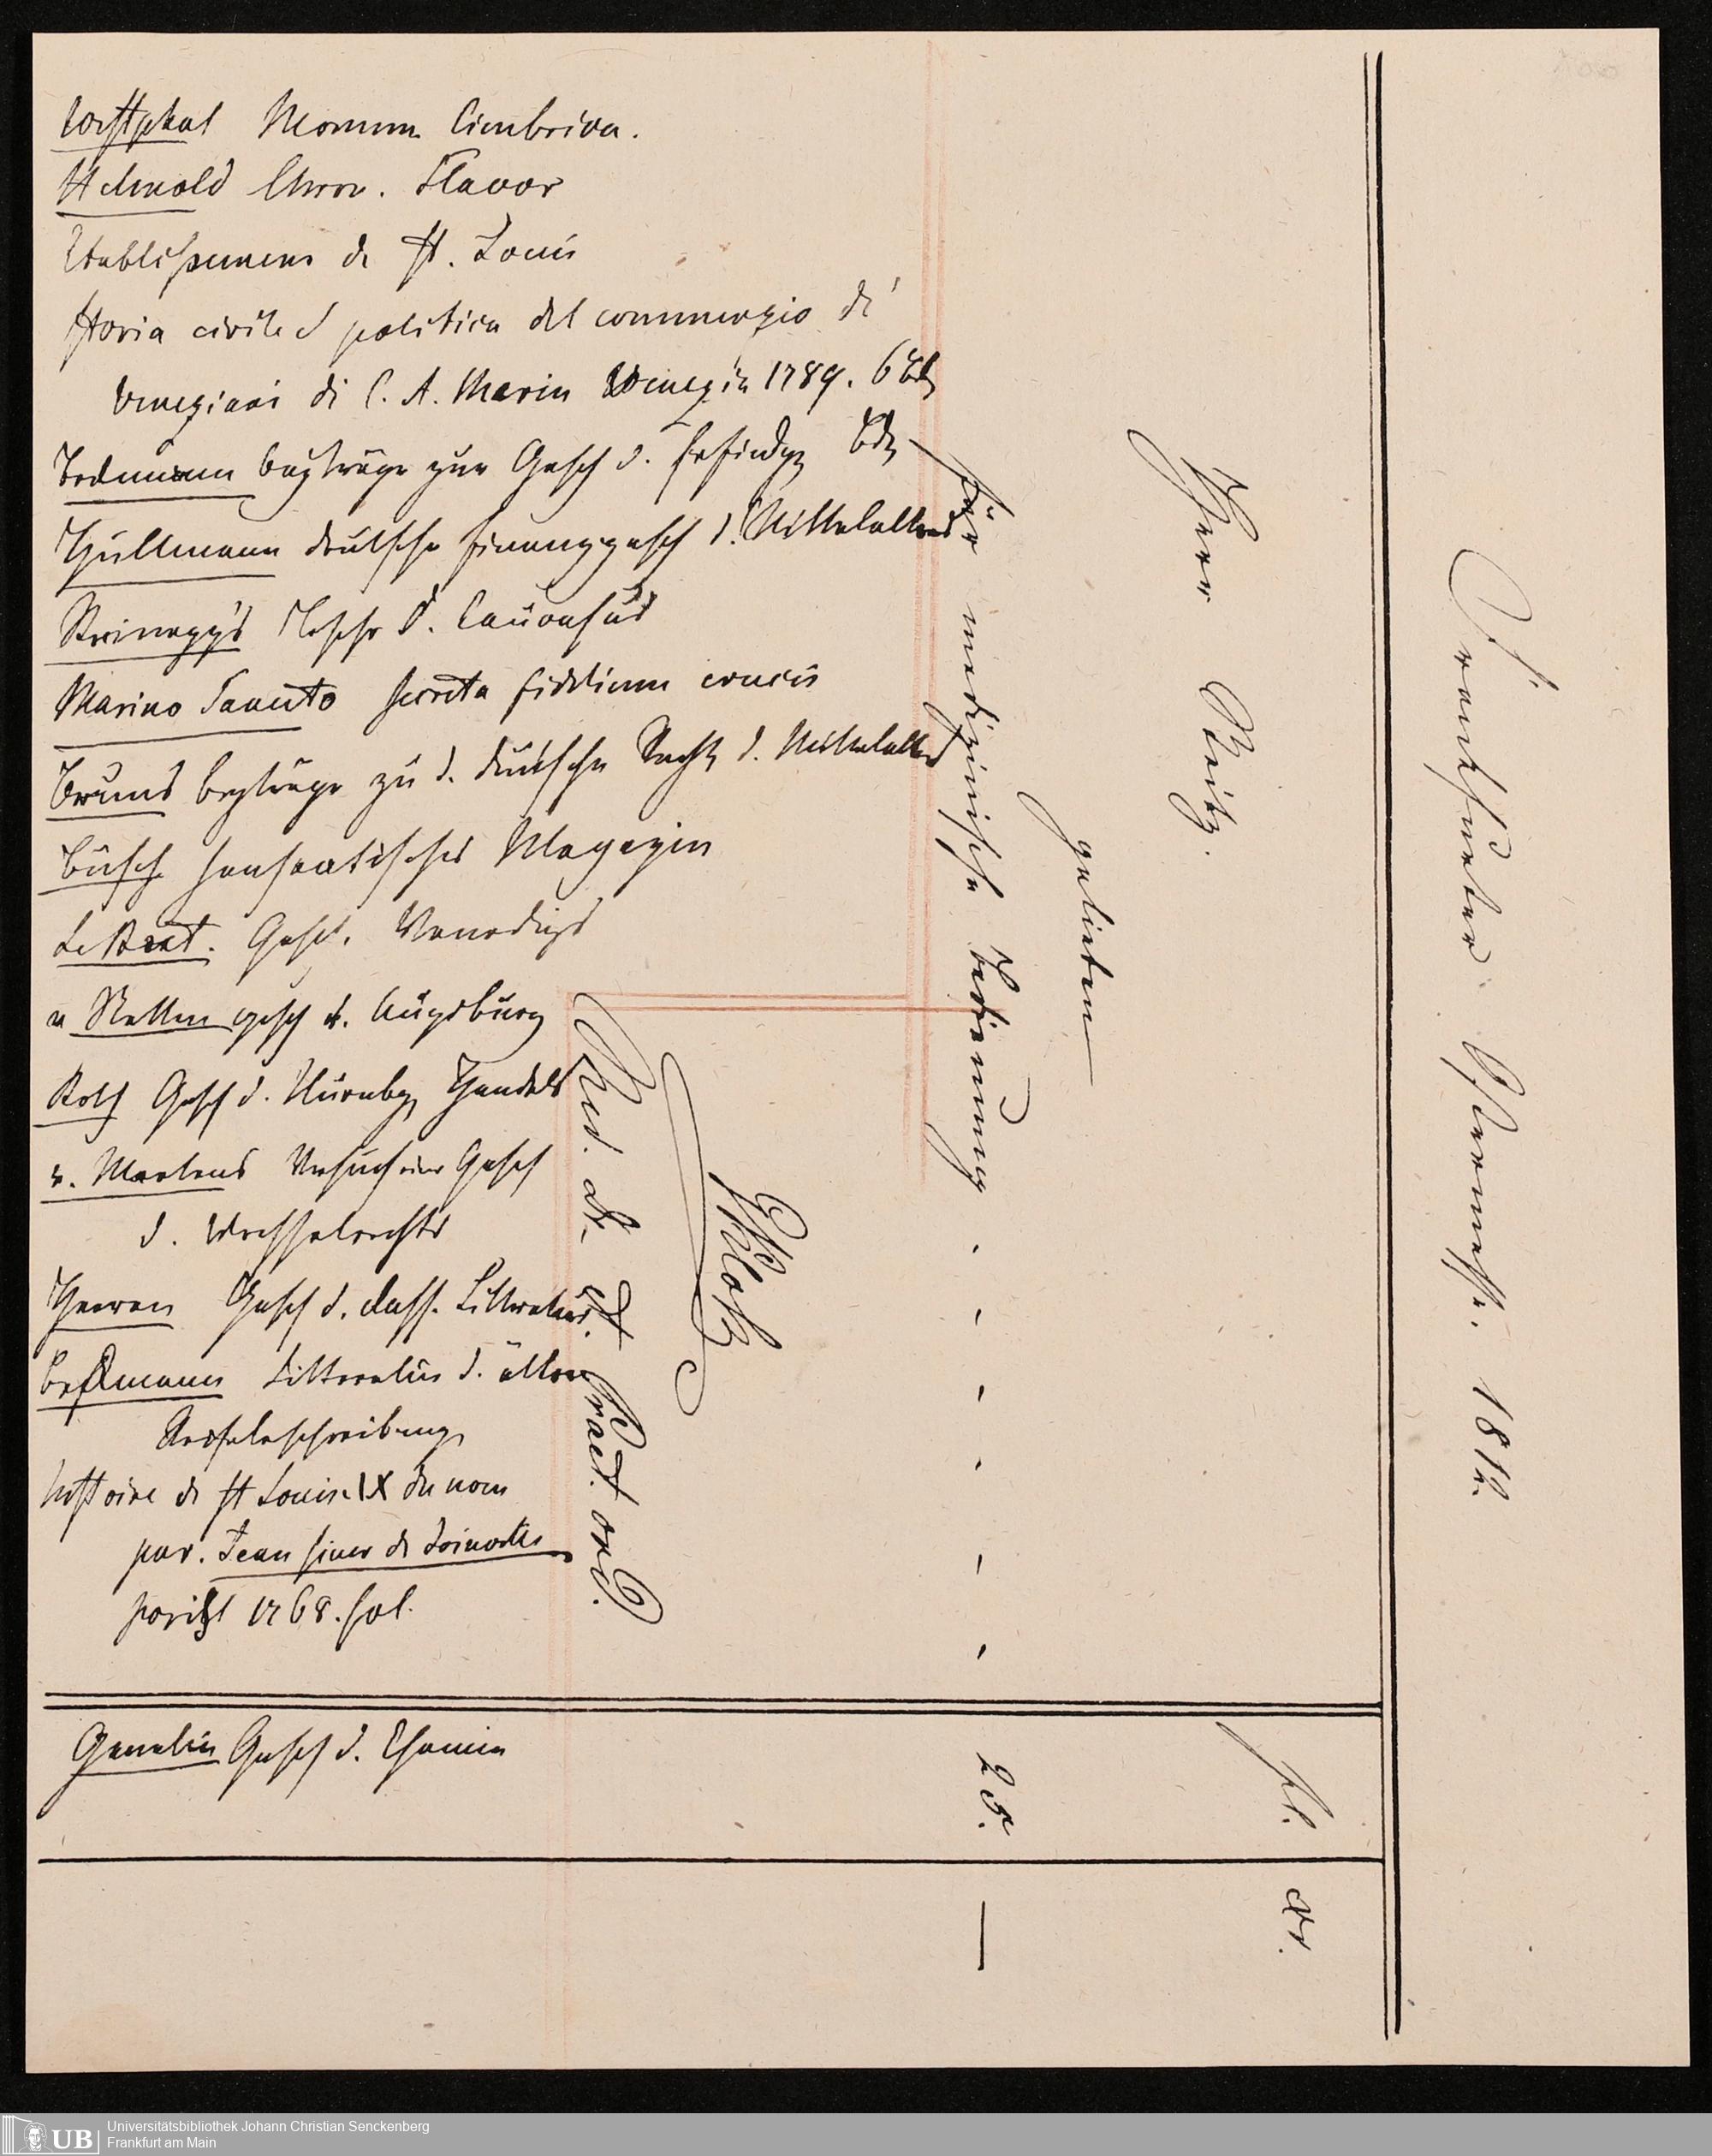 Westphal Monum Cimbrica.
Helmold Chron. Slavor
Etablissemens de St. Louis
Storia civile e politica del commerzio di
Veneziani di C. A. Marin Venezia 1789. 6 Bd
Bekmann Beyträge zur Gesch d. Erfindg Bd
Hüllmann deutsche Finanzgesch d. Mittelalters
Reineggs d. Caucasus
Marino Sanuto secreta fidelium crucis
Bruns Beyträge zu d. deutschen Recht d. Mittelalter
Büsch hanseatisches Magazin
Le Bret. Gesch. Venedigs
v Stetten Gesch v. Augsburg
Roth Gesch d. Nürnbg Handels
v. Martens Versuch einer Gesch
d. Wechselrechts
Heeren Gesch d. class. Litteratur.
Beckmann Litteratur d. ältern
Reisebeschreibung
histoire de St Louis IX du nom
par. Jean sieur de Joinville
1768. fol.
Gmelin Gesch d. Chemie
Frankfurter Ostermesse. 1812.
Herr Reitz.
gelieben
fl. xr.
für medizinische Bedienung - - - - - - 25. —
Klotz
Med. Dr. et Pract. ord.
Universitätsbibliothek Johann Christian Senckenberg
Frankfurt am Main
UB